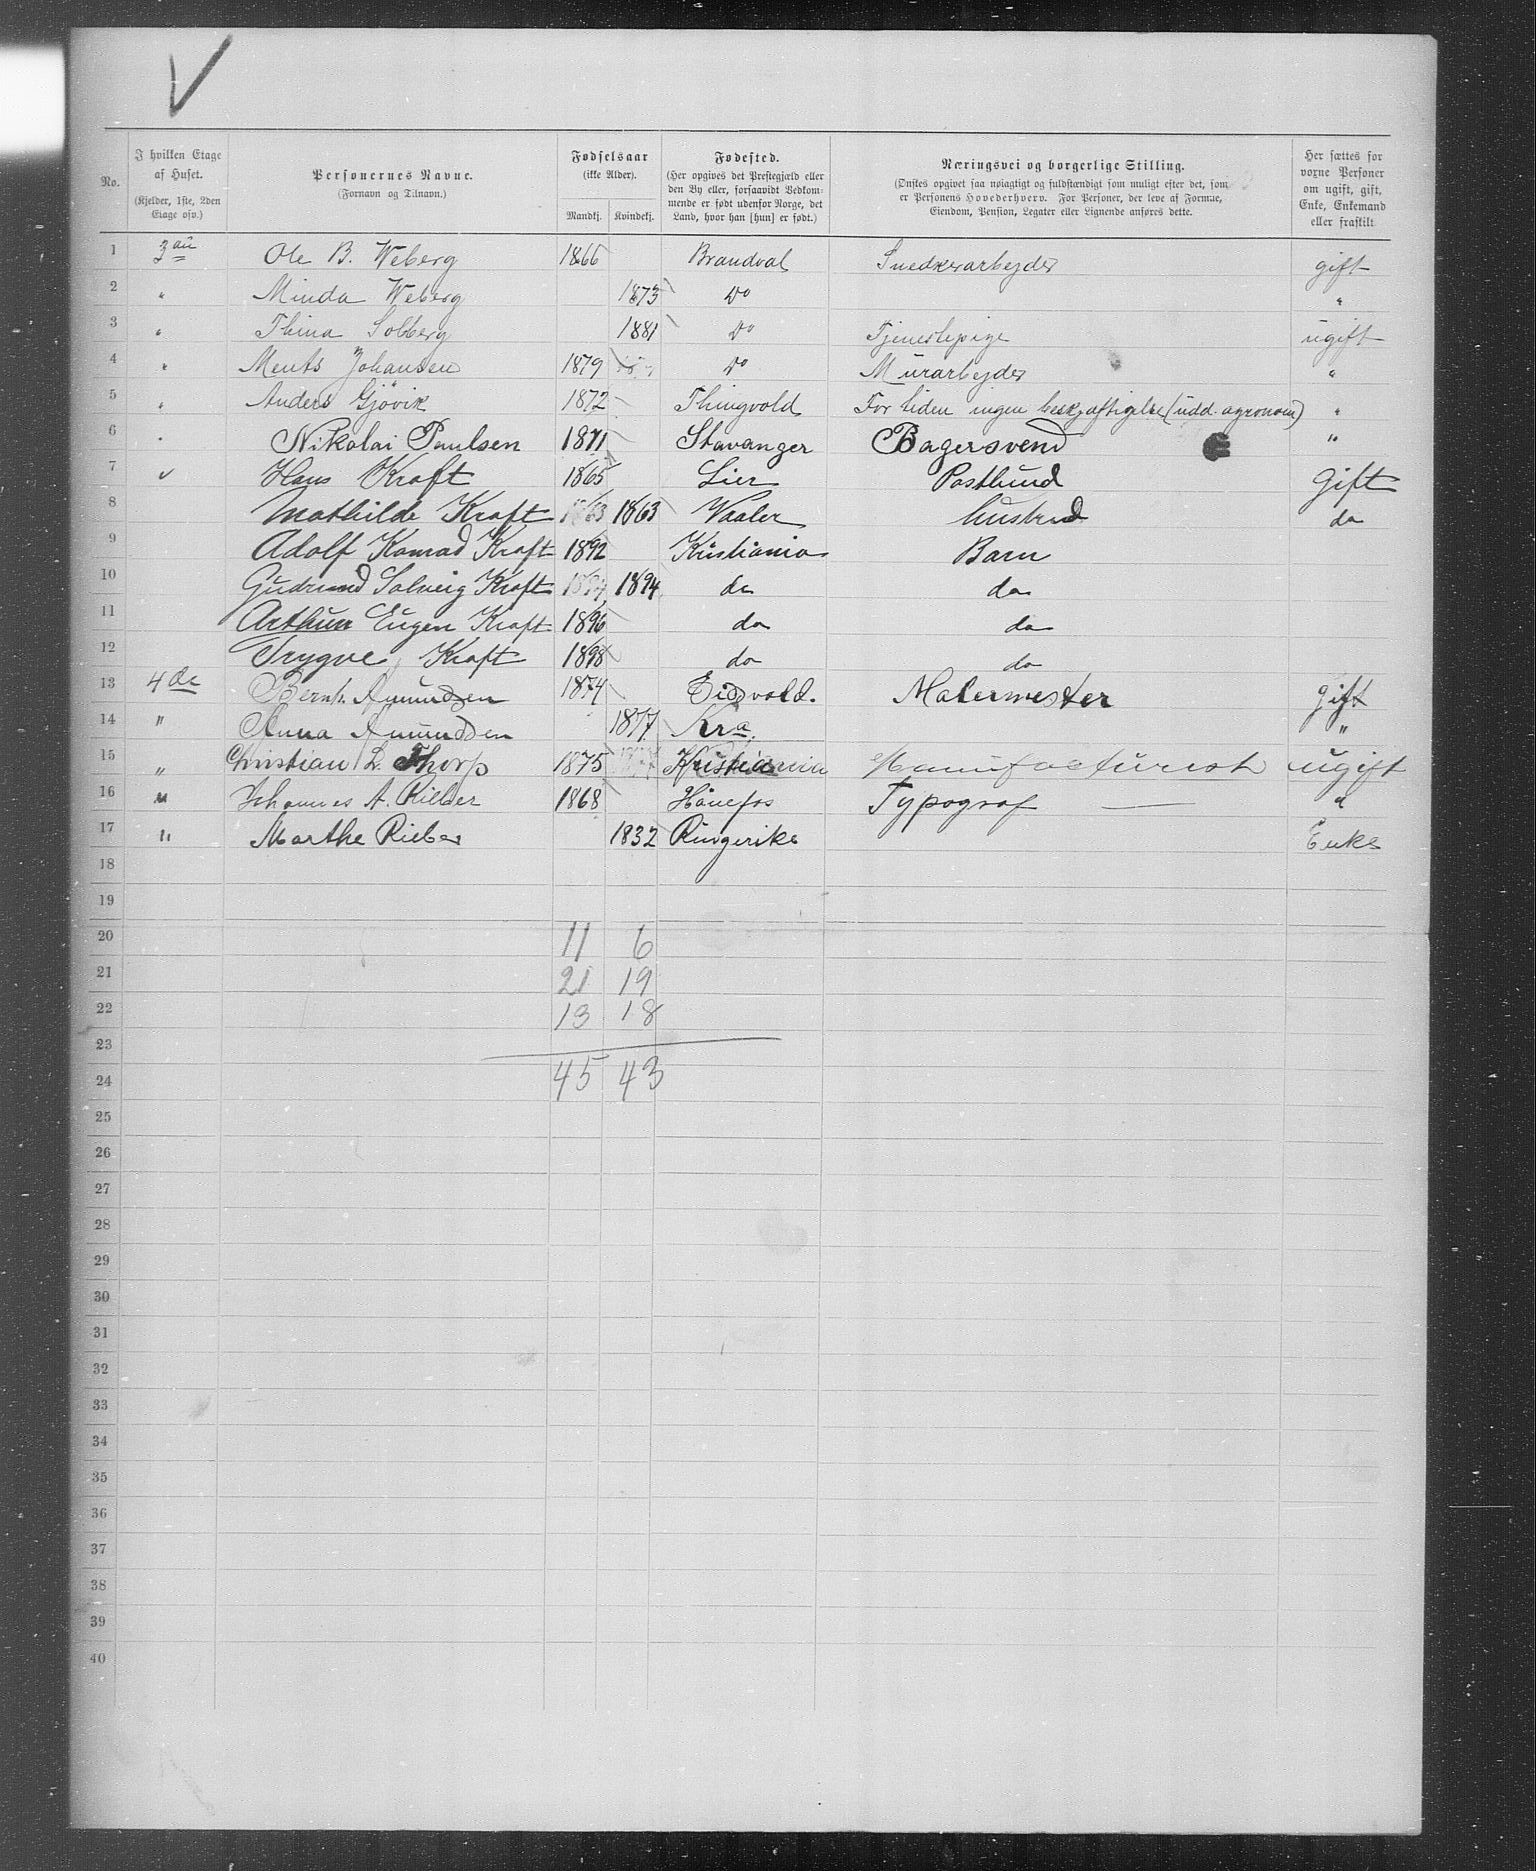 No.
I hvilken Etage af Huset. (Kjelder, 1ste, 2den Etage osv.)
Personernes Navne. (Fornavn og Tilnavn.)
Fødselsaar (ikke Alder). Mandkj. Kvindekj.
Fødested. (Her opgives det Prestegjæld eller den By eller, forsaavidt Vedkommende er født udenfor Norge, det Land, hvor han [hun] er født.)
Næringsvei og borgerlige Stilling. (Ønskes opgivet saa nøiagtigt og fuldstændigt som muligt efter det, som er Personens Hovederhverv. For Personer, der leve af Formue, Eiendom, Pension, Legater eller Lignende anføres dette.
Her sættes for voxne Personer om ugift, gift, Enke, Enkemand eller fraskilt
1 3die Ole B. Weberg 1866 Brandval Snedkerarbejder gift
2 " Minda Weberg 1873 Do "
3 " Thina Solberg 1881 Do Tjenestepige ugift
4 " Ments Johansen 1879 Do Murarbejder "
5 " Anders Gjövik 1872 Thingvold For tiden ingen beskjæftigelse (udd. agronom) "
6 " Nikolai Paulsen 1871 Stavanger Bagersvend "
7 " Hans Kraft 1865 Lier Postbud Gift
8 Mathilde Kraft 1863 1863 Vaaler Hustrud do
9 Adolf Konrad Kraft 1892 Kristiania Barn
10 Gudrund Solveig Kraft 1894 1894 do do
11 Arthur Eugen Kraft 1896 do do
12 Trygve Kraft 1898 do do
13 4de Bernh. Amundsen 1874 Eidsvold. Malermester gift
14 " Anna Amundsen 1877 Kra. "
15 " Christian L. Thorp 1875 Kristiania Manufacturist ugift
16 " Johannes A. Rieber 1868 Hönefos Typograf "
17 " Marthe Rieber 1832 Ringerike Enke
18
19
20 11 6
21 21 19
22 13 18
23
24 45 43
25
26
27
28
29
30
31
32
33
34
35
36
37
38
39
40